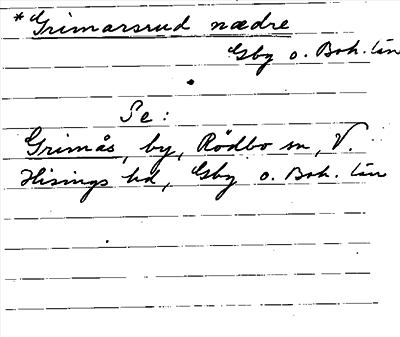 *Grimarsrud nædre
Gbg o. Boh. län
Se:
Grimås, by, Rödbo sn, V.
Hisings hd, Gbg o. Boh. län